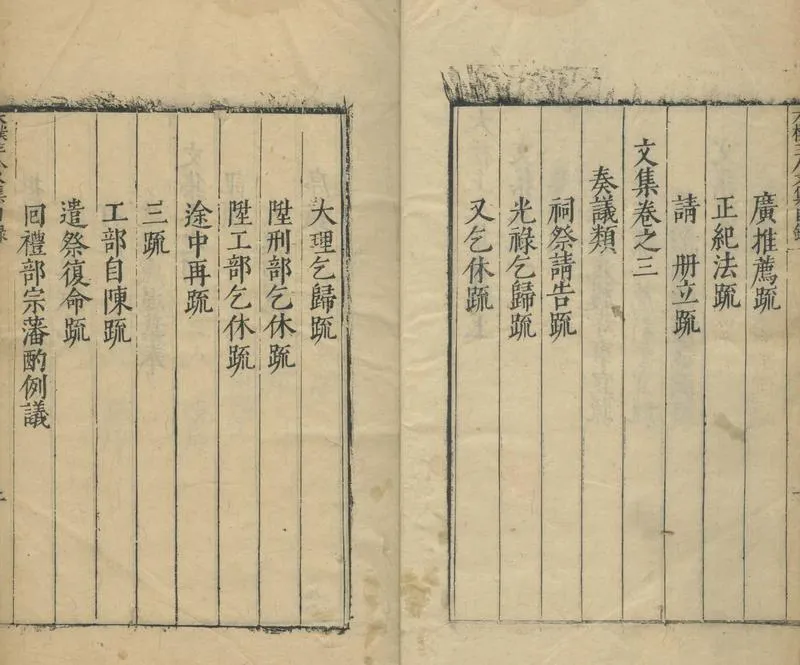 廣推薦疏
正紀法疏
請 册立疏
文集卷之三
奏議類
祠祭請告疏
光祿乞歸疏
又乞休疏
大理乞歸疏
陞刑部乞休疏
陞工部乞休疏
途中再疏
三疏
工部自陳疏
遣祭復命疏
回禮部宗藩酌例議